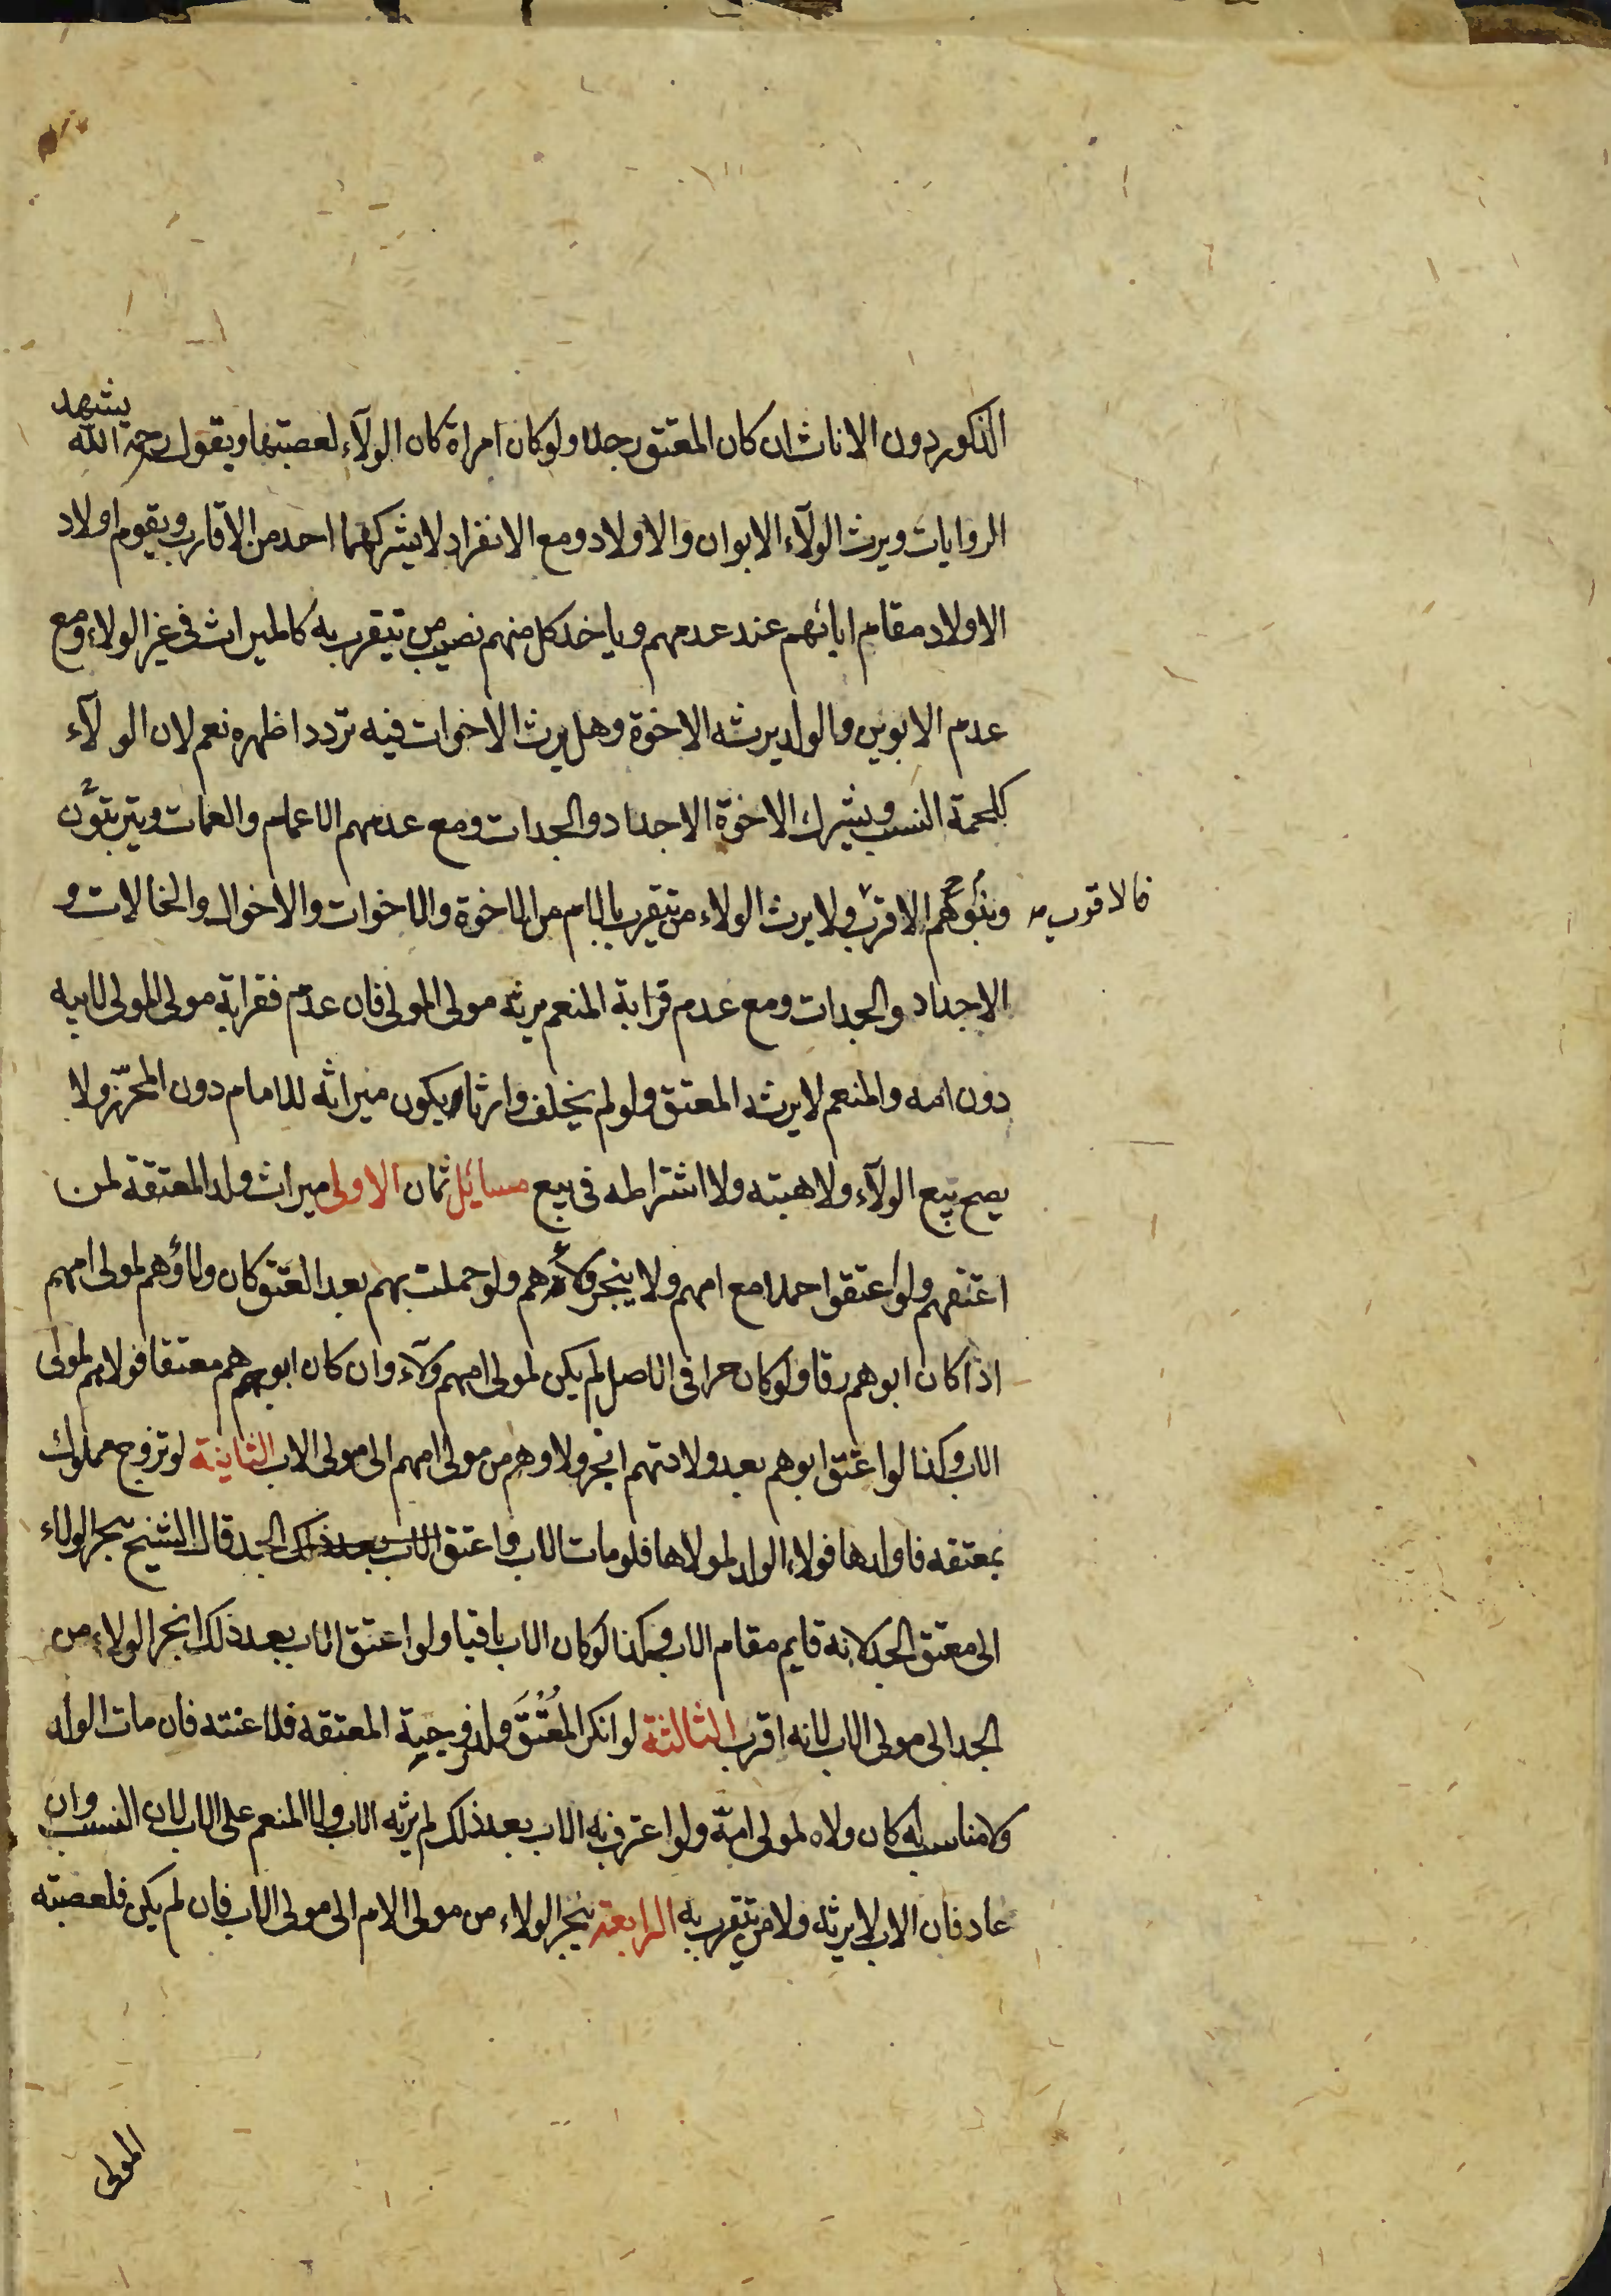 الذكور دون الاناث ان كان المعتق رجلا ولو كان امراة كان الولآء لعصبتها وبقوله رحمه الله يشهد
الروايات ويرث الولآء الابوان والاولاد ومع الانفراد لا يشركهما احد من الاقارب ويقوم اولاد
الاولاد مقام ابائهم عند عدمهم وياخذ كل منهم نصيب من يتقرب به كالميراث في غير الولاء ومع
عدم الابوين والولد يرثه الاخوة وهل يرث الاخوات فيه تردد اظهره نعم لان الولآء
كلحمة النسب ويشرك الاخوة الاجداد والجدات ومع عدمهم الاعمام والعمات ويترتبون
وبنوهم الاقرب فالاقرب ولا يرث الولاء من يتقرب بالام من الاخوة والاخوات والاخوال والخالات و
الاجداد والجدات ومع عدم قرابة المنعم يرثه مولى المولى فان عدم فقرابة مولى المولى لابيه
دون امه والمنعم لا يرثه المعتق ولو لم يخلف وارثا ويكون ميراثه للامام دون المحرّر ولا
يصح بيع الولآء ولا هبته ولا اشتراطه في بيع مسايل ثمان الاولى ميراث ولد المعتقة لمن
اعتقهم ولو اعتقوا حملا مع امهم ولا ينجر ولاؤهم ولو حملت بهم بعد العتق كان ولاؤهم لمولى امهم
اذا كان ابوهم رقا ولو كان حرا في الاصل لم يكن لمولى امهم ولآء وان كان ابوهم معتقا فولاهم لمولى
الاب وكذا لو اعتق ابوهم بعد ولادتهم انجر ولاوهم من مولى امهم الى مولى الاب الثانية لو تزوج مملوك
بمعتقه فاولدها فولاء الولد لمولاها فلو مات الاب واعتق الاب بعد ذلك الجد قال الشيخ ينجر الولاء
الى معتق الجد لانه قايم مقام الاب وكذا لو كان الاب باقيا ولو اعتق الاب بعد ذلك انجر الولاء من
الجد الى مولى الاب لانه اقرب الثالثة لو انكر المُعْتَق ولد زوجية المعتقه فلاعنته فان مات الولد
ولا مناسب له كان ولاه لمولى امّه ولو اعترف به الاب بعد ذلك لم يرثه الاب ولا المنعم على الاب لان النسب وان
عاد فان الاب لا يرثه ولا من يتقرب به الرابعة ينجر الولاء من مولى الام الى مولى الاب فان لم يكن فلعصبته
المولى